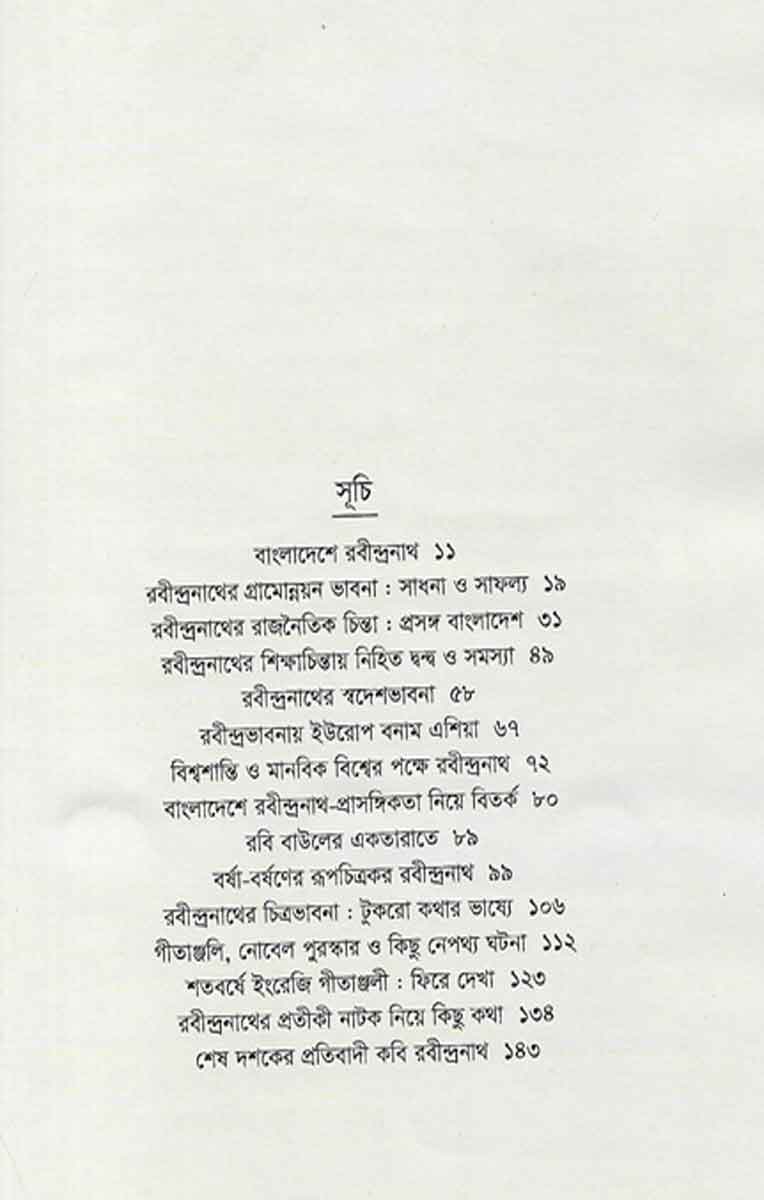 সূচি
বাংলাদেশে রবীন্দ্রনাথ ১১
রবীন্দ্রনাথের গ্রামোন্নয়ন ভাবনা : সাধনা ও সাফল্য ১৯
রবীন্দ্রনাথের রাজনৈতিক চিন্তা : প্রসঙ্গ বাংলাদেশ ৩১
রবীন্দ্রনাথের শিক্ষাচিন্তায় নিহিত দ্বন্দ্ব ও সমস্যা ৪৯
রবীন্দ্রনাথের স্বদেশভাবনা ৫৮
রবীন্দ্রভাবনায় ইউরোপ বনাম এশিয়া ৬৭
বিশ্বশান্তি ও মানবিক বিশ্বের পক্ষে রবীন্দ্রনাথ ৭২
বাংলাদেশে রবীন্দ্রনাথ-প্রাসঙ্গিকতা নিয়ে বিতর্ক ৮০
রবি বাউলের একতারাতে ৮৯
বর্ষা-বর্ষণের রূপচিত্রকর রবীন্দ্রনাথ ৯৯
রবীন্দ্রনাথের চিত্রভাবনা : টুকরো কথার ভাষ্যে ১০৬
গীতাঞ্জলি, নোবেল পুরস্কার ও কিছু নেপথ্য ঘটনা ১১২
শতবর্ষে ইংরেজি গীতাঞ্জলী : ফিরে দেখা ১২৩
রবীন্দ্রনাথের প্রতীকী নাটক নিয়ে কিছু কথা ১৩৪
শেষ দশকের প্রতিবাদী কবি রবীন্দ্রনাথ ১৪৩